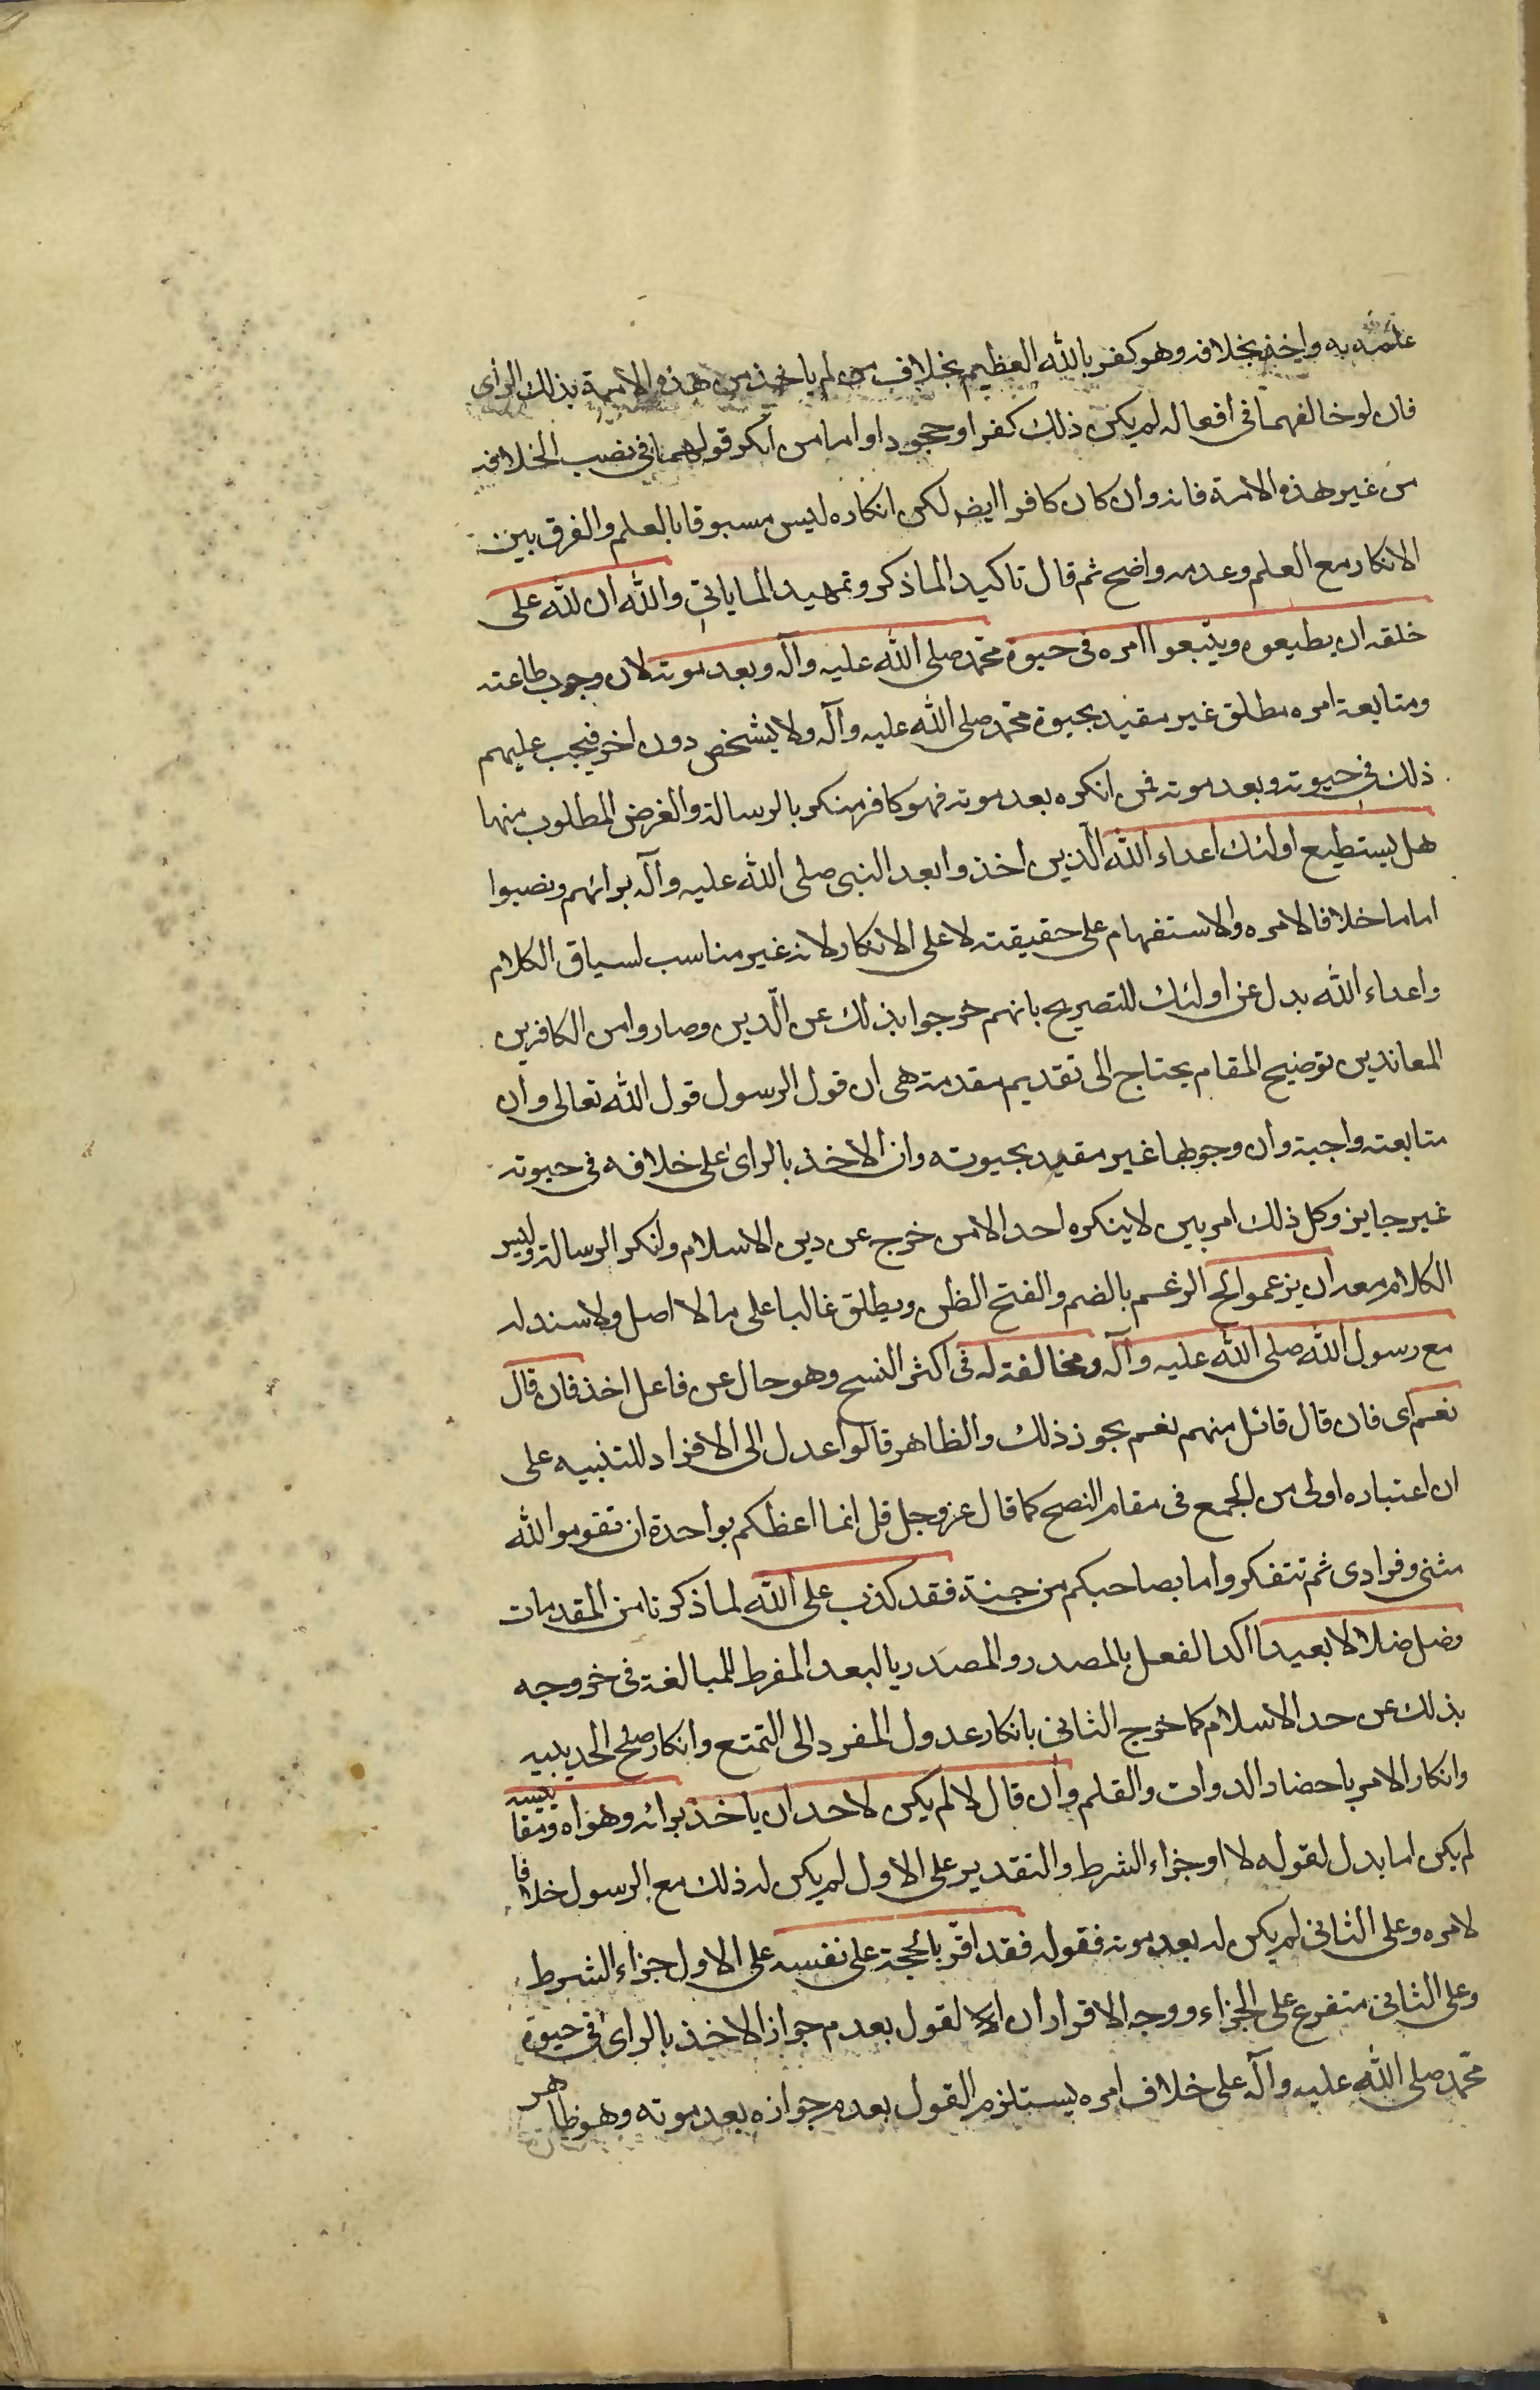 علمه به واخذ بخلافه وهو كفر بالله العظيم بخلاف من لم ياخذ من هذه الامة بذلك الراى
فان لو خالفهما فى افعاله لم يكن ذلك كفرا وجحودا واما من انكر قولهما فى نصب الخلافة
من غير هذه الامة فانه وان كان كافرا ايضا لكن انكاره ليس مسبوقا بالعلم والفرق بين
الانكار مع العلم وعدمه واضح ثم قال تاكيدا لما ذكر وتمهيدا لما ياتى والله ان لله على
خلقه ان يطيعوه ويتبعوا امره فى حيوة محمد صلى الله عليه وآله وبعد موته لان وجوب طاعته
ومتابعة امره مطلق غير مقيد بحيوة محمد صلى الله عليه وآله ولا بشخص دون اخر فيجب عليهم
ذلك فى حيوته وبعد موته فمن انكره بعد موته فهو كافر منكر بالرسالة والغرض المطلوب منها
هل يستطيع اولئك اعداء الله الذين اخذوا بعد النبى صلى الله عليه وآله برائهم ونصبوا
اماما خلافا لامره والاستفهام على حقيقته لا على الانكار لانه غير مناسب لسياق الكلام
واعداء الله بدل عن اولئك للتصريح بانهم خرجوا بذلك عن الدين وصاروا من الكافرين
المعاندين توضيح المقام يحتاج الى تقديم مقدمة هى ان قول الرسول قول الله تعالى وان
متابعته واجبة وان وجوبها غير مقيد بحيوته وان الاخذ بالراى على خلافه فى حيوته
غير جايز وكل ذلك امر بين لا ينكره احد الا من خرج عن دين الاسلام وانكر الرسالة وليس
الكلام معه ان يزعموا الخ الزعم بالضم والفتح الظن ويطلق غالبا على ما لا اصل ولا سند له
مع رسول الله صلى الله عليه وآله ومخالفة له فى اكثر النسخ وهو حال عن فاعل اخذ فان قال
نعم اى فان قال قائل منهم نعم يجوز ذلك والظاهر قالوا عدل الى الافراد للتنبيه على
ان اعتباره اولى من الجمع فى مقام النصح كما قال عز وجل قل انما اعظكم بواحدة ان تقوموا لله
مثنى وفرادى ثم تتفكروا ما بصاحبكم من جنة فقد كذب على الله لما ذكرنا من المقدمات
وضل ضلالا بعيدا اكد الفعل بالمصدر والمصدر بالبعد المفرط للمبالغة فى خروجه
بذلك عن حد الاسلام كما خرج الثانى بانكار عدول المفرد الى التمتع وانكار صلح الحديبيه
وانكار الامر باحضار الدوات والقلم وان قال لا لم يكن لاحد ان ياخذ برائه وهواه ومقاييسه
لم يكن اما بدل لقوله لا او جزاء الشرط والتقدير على الاول لم يكن له ذلك مع الرسول خلافا
لامره وعلى الثانى لم يكن له بعد موته فقوله فقد اقر بالحجة على نفسه على الاول جزاء الشرط
وعلى الثانى متفرع على الجزاء ووجه الاقرار ان القول بعدم جواز الاخذ بالراى فى حيوة
محمد صلى الله عليه وآله على خلاف امره يستلزم القول بعدم جوازه بعد موته وهو ظاهر